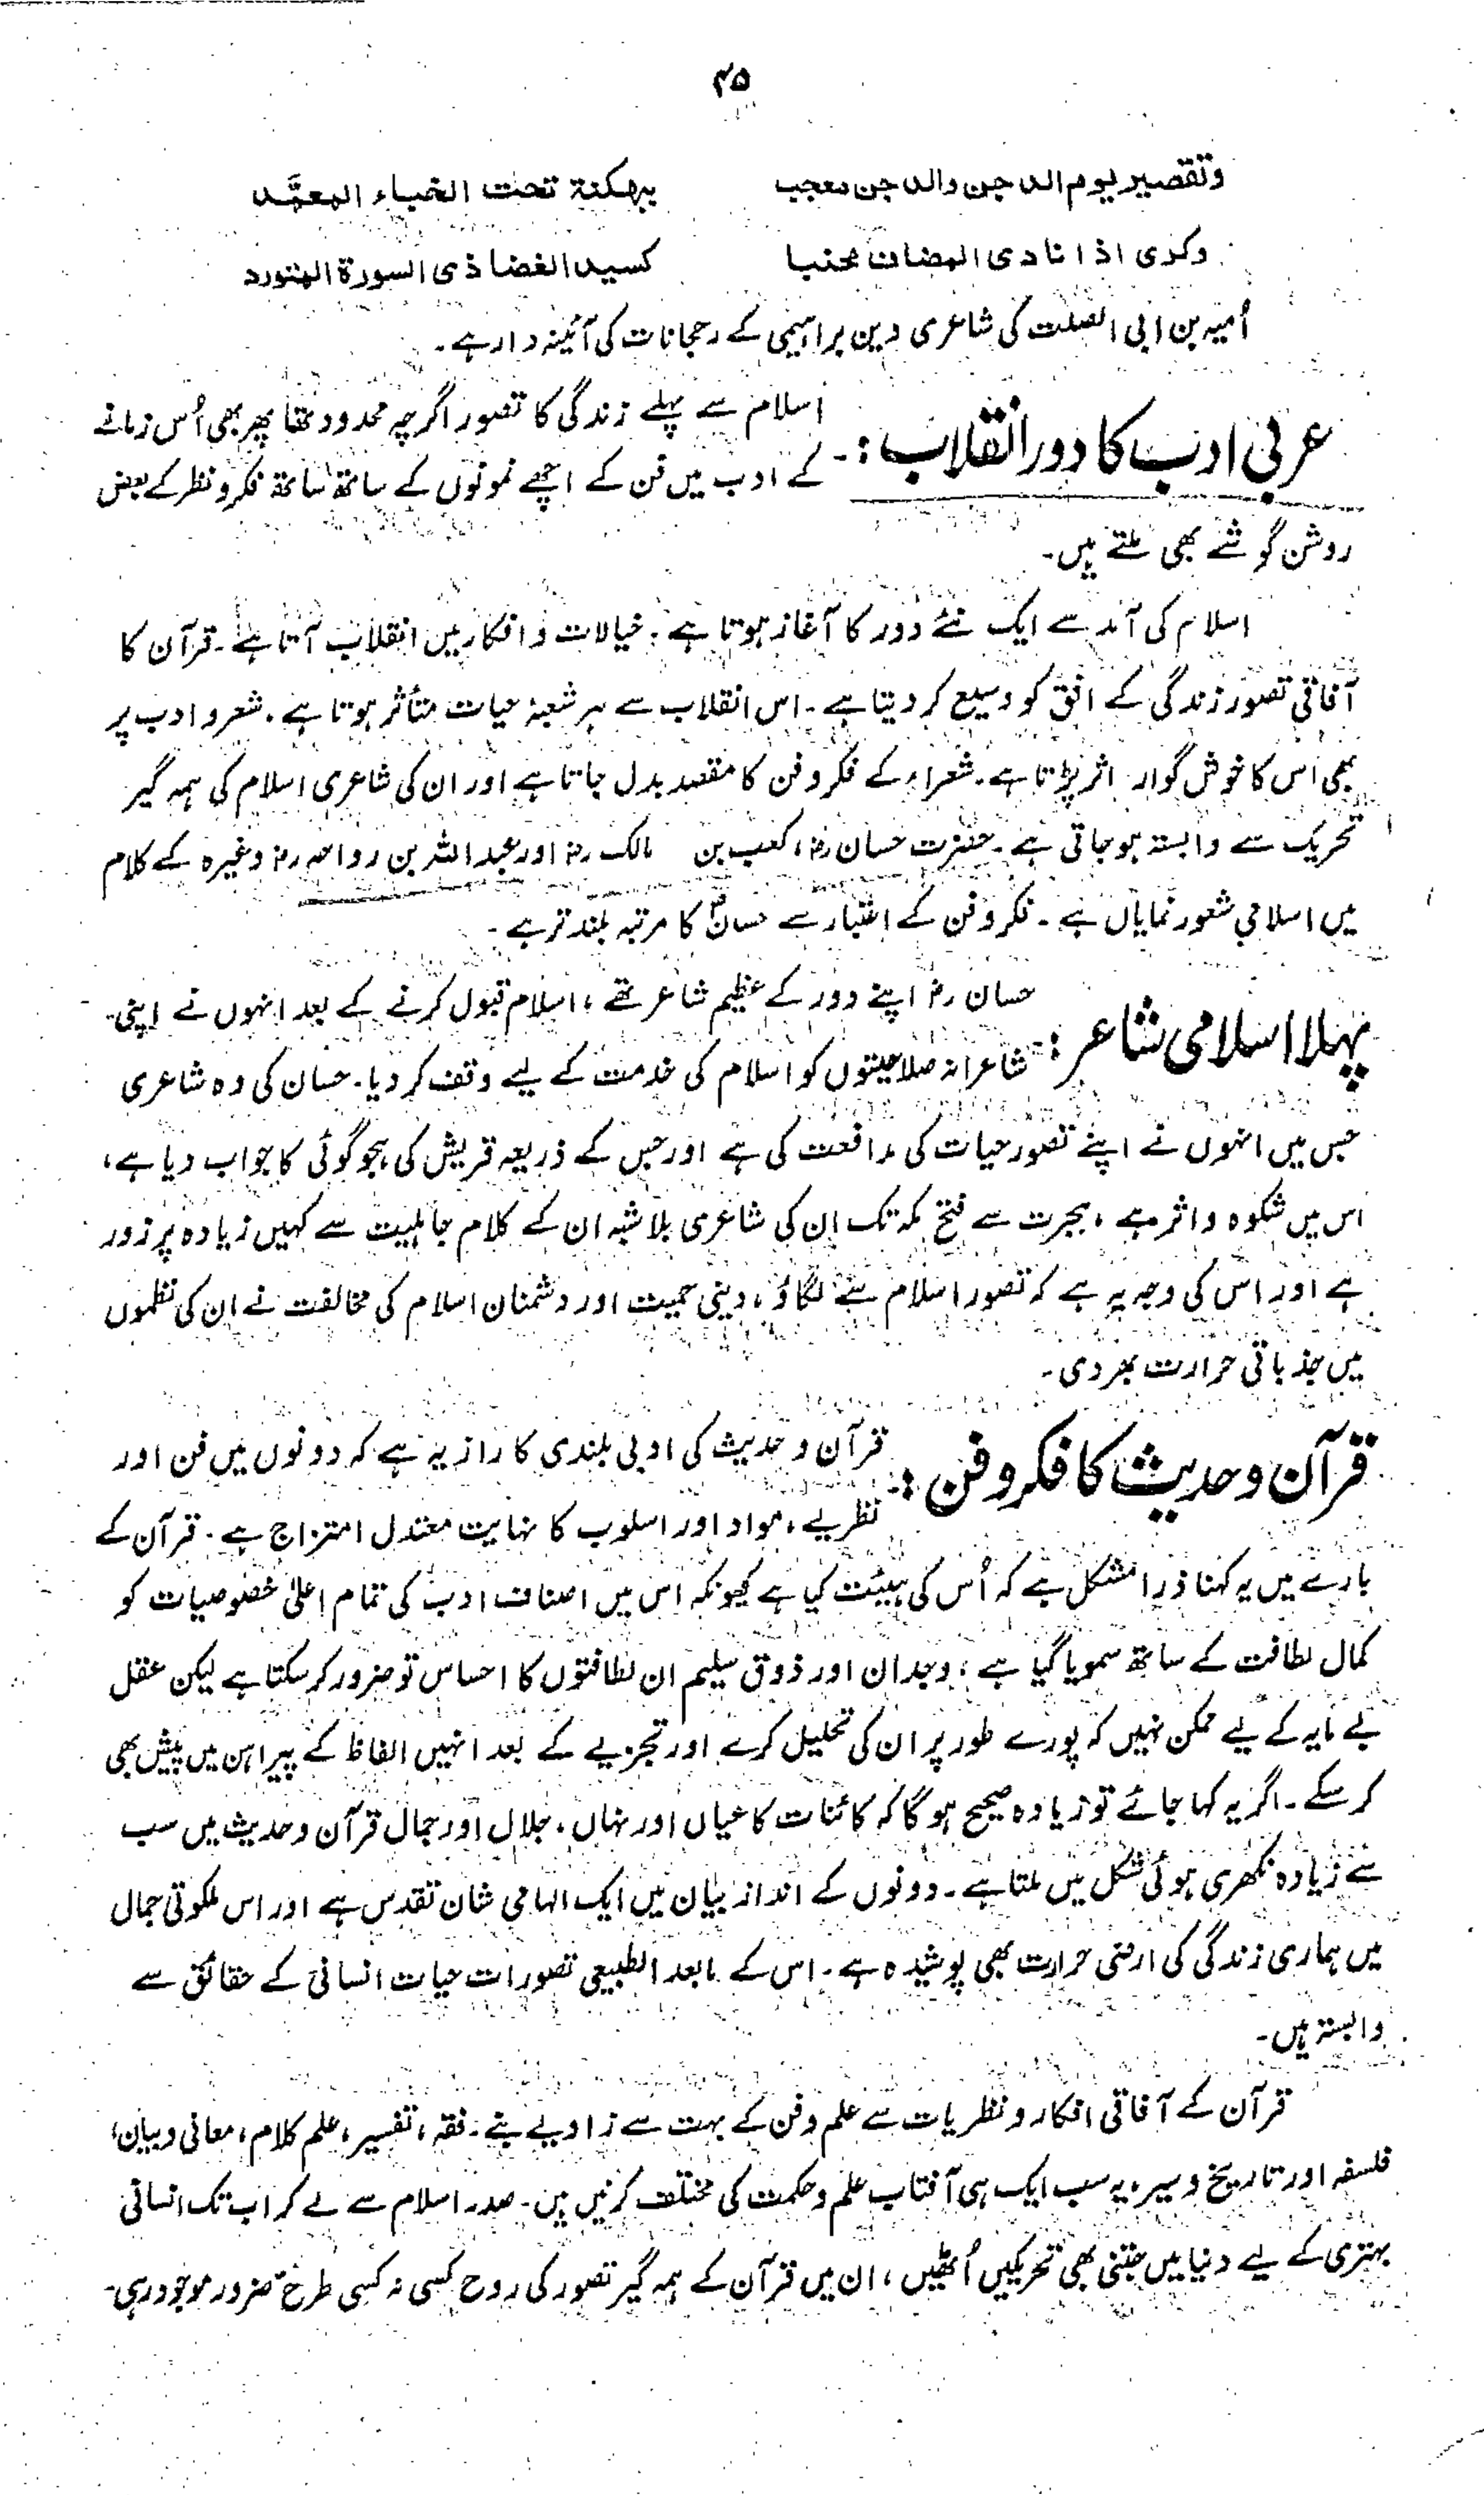 ۴۵
وتقصیر یوم الدجن والدجن معجب ببهکنة تحت الخباء المعمَّد
وکری اذا نادی المضاف محنبا کسید الغضا ذی السورة المتورد
اُمیہ بن ابی الصلت کی شاعری دین براہیمی کے رحجانات کی آئینہ دار ہے۔
عربی ادب کا دور انقلاب :۔ اسلام سے پہلے زندگی کا تصور اگرچہ محدود تھا پھر بھی اُس زمانے
کے ادب میں فن کے اچھے نمونوں کے ساتھ ساتھ فکر و نظر کے بعض
روشن گوشے بھی ملتے ہیں۔
اسلام کی آمد سے ایک نئے دور کا آغاز ہوتا ہے، خیالات و افکار میں انقلاب آتا ہے۔ قرآن کا
آفاقی تصور زندگی کے افق کو وسیع کر دیتا ہے۔ اس انقلاب سے ہر شعبۂ حیات متأثر ہوتا ہے، شعر و ادب پر
بھی اس کا خوش گوار اثر پڑتا ہے۔ شعراء کے فکر و فن کا مقصد بدل جاتا ہے اور ان کی شاعری اسلام کی ہمہ گیر
تحریک سے وابستہ ہو جاتی ہے۔ حضرت حسان رض، کعب بن مالک رض اور عبد اللہ بن رواحہ رض وغیرہ کے کلام
میں اسلامی شعور نمایاں ہے۔ فکر و فن کے اعتبار سے حسانؓ کا مرتبہ بلند تر ہے۔
پہلا اسلامی شاعر :۔ حسان رض اپنے دور کے عظیم شاعر تھے، اسلام قبول کرنے کے بعد انہوں نے اپنی
شاعرانہ صلاحیتوں کو اسلام کی خدمت کے لیے وقف کر دیا۔ حسان کی وہ شاعری
جس میں انہوں نے اپنے تصور حیات کی مدافعت کی ہے اور جس کے ذریعہ قریش کی ہجو گوئی کا جواب دیا ہے،
اس میں شکوہ و اثر ہے، ہجرت سے فتح مکہ تک ان کی شاعری بلا شبہ ان کے کلام جاہلیت سے کہیں زیادہ پر زور
ہے اور اس کی وجہ یہ ہے کہ تصور اسلام سے لگاؤ، دینی حمیت اور دشمنان اسلام کی مخالفت نے ان کی نظموں
میں جذباتی حرارت بھر دی۔
قرآن و حدیث کا فکر و فن :۔ قرآن و حدیث کی ادبی بلندی کا راز یہ ہے کہ دونوں میں فن اور
نظریے، مواد اور اسلوب کا نہایت معتدل امتزاج ہے۔ قرآن کے
بارے میں یہ کہنا ذرا مشکل ہے کہ اُس کی ہیئت کیا ہے کیونکہ اس میں اصناف ادب کی تمام اعلیٰ خصوصیات کو
کمال لطافت کے ساتھ سمویا گیا ہے، وجدان اور ذوق سلیم ان لطافتوں کا احساس تو ضرور کر سکتا ہے لیکن عقل
بے مایہ کے لیے ممکن نہیں کہ پورے طور پر ان کی تحلیل کرے اور تجزیے کے بعد انہیں الفاظ کے پیراہن میں پیش بھی
کر سکے۔ اگر یہ کہا جائے تو زیادہ صحیح ہو گا کہ کائنات کا عیاں اور نہاں، جلال اور جمال قرآن و حدیث میں سب
سے زیادہ نکھری ہوئی شکل میں ملتا ہے۔ دونوں کے انداز بیان میں ایک الہامی شان تقدس ہے اور اس ملکوتی جمال
میں ہماری زندگی کی ارضی حرارت بھی پوشیدہ ہے۔ اس کے مابعد الطبیعی تصورات حیات انسانی کے حقائق سے
وابستہ ہیں۔
قرآن کے آفاقی افکار و نظریات سے علم و فن کے بہت سے زاویے بنے۔ فقہ، تفسیر، علم کلام، معانی و بیان،
فلسفہ اور تاریخ و سیر، یہ سب ایک ہی آفتاب علم و حکمت کی مختلف کرنیں ہیں۔ صدر اسلام سے لے کر اب تک انسانی
بہتری کے لیے دنیا میں جتنی بھی تحریکیں اُٹھیں، ان میں قرآن کے ہمہ گیر تصور کی روح کسی نہ کسی طرح ضرور موجود رہی۔